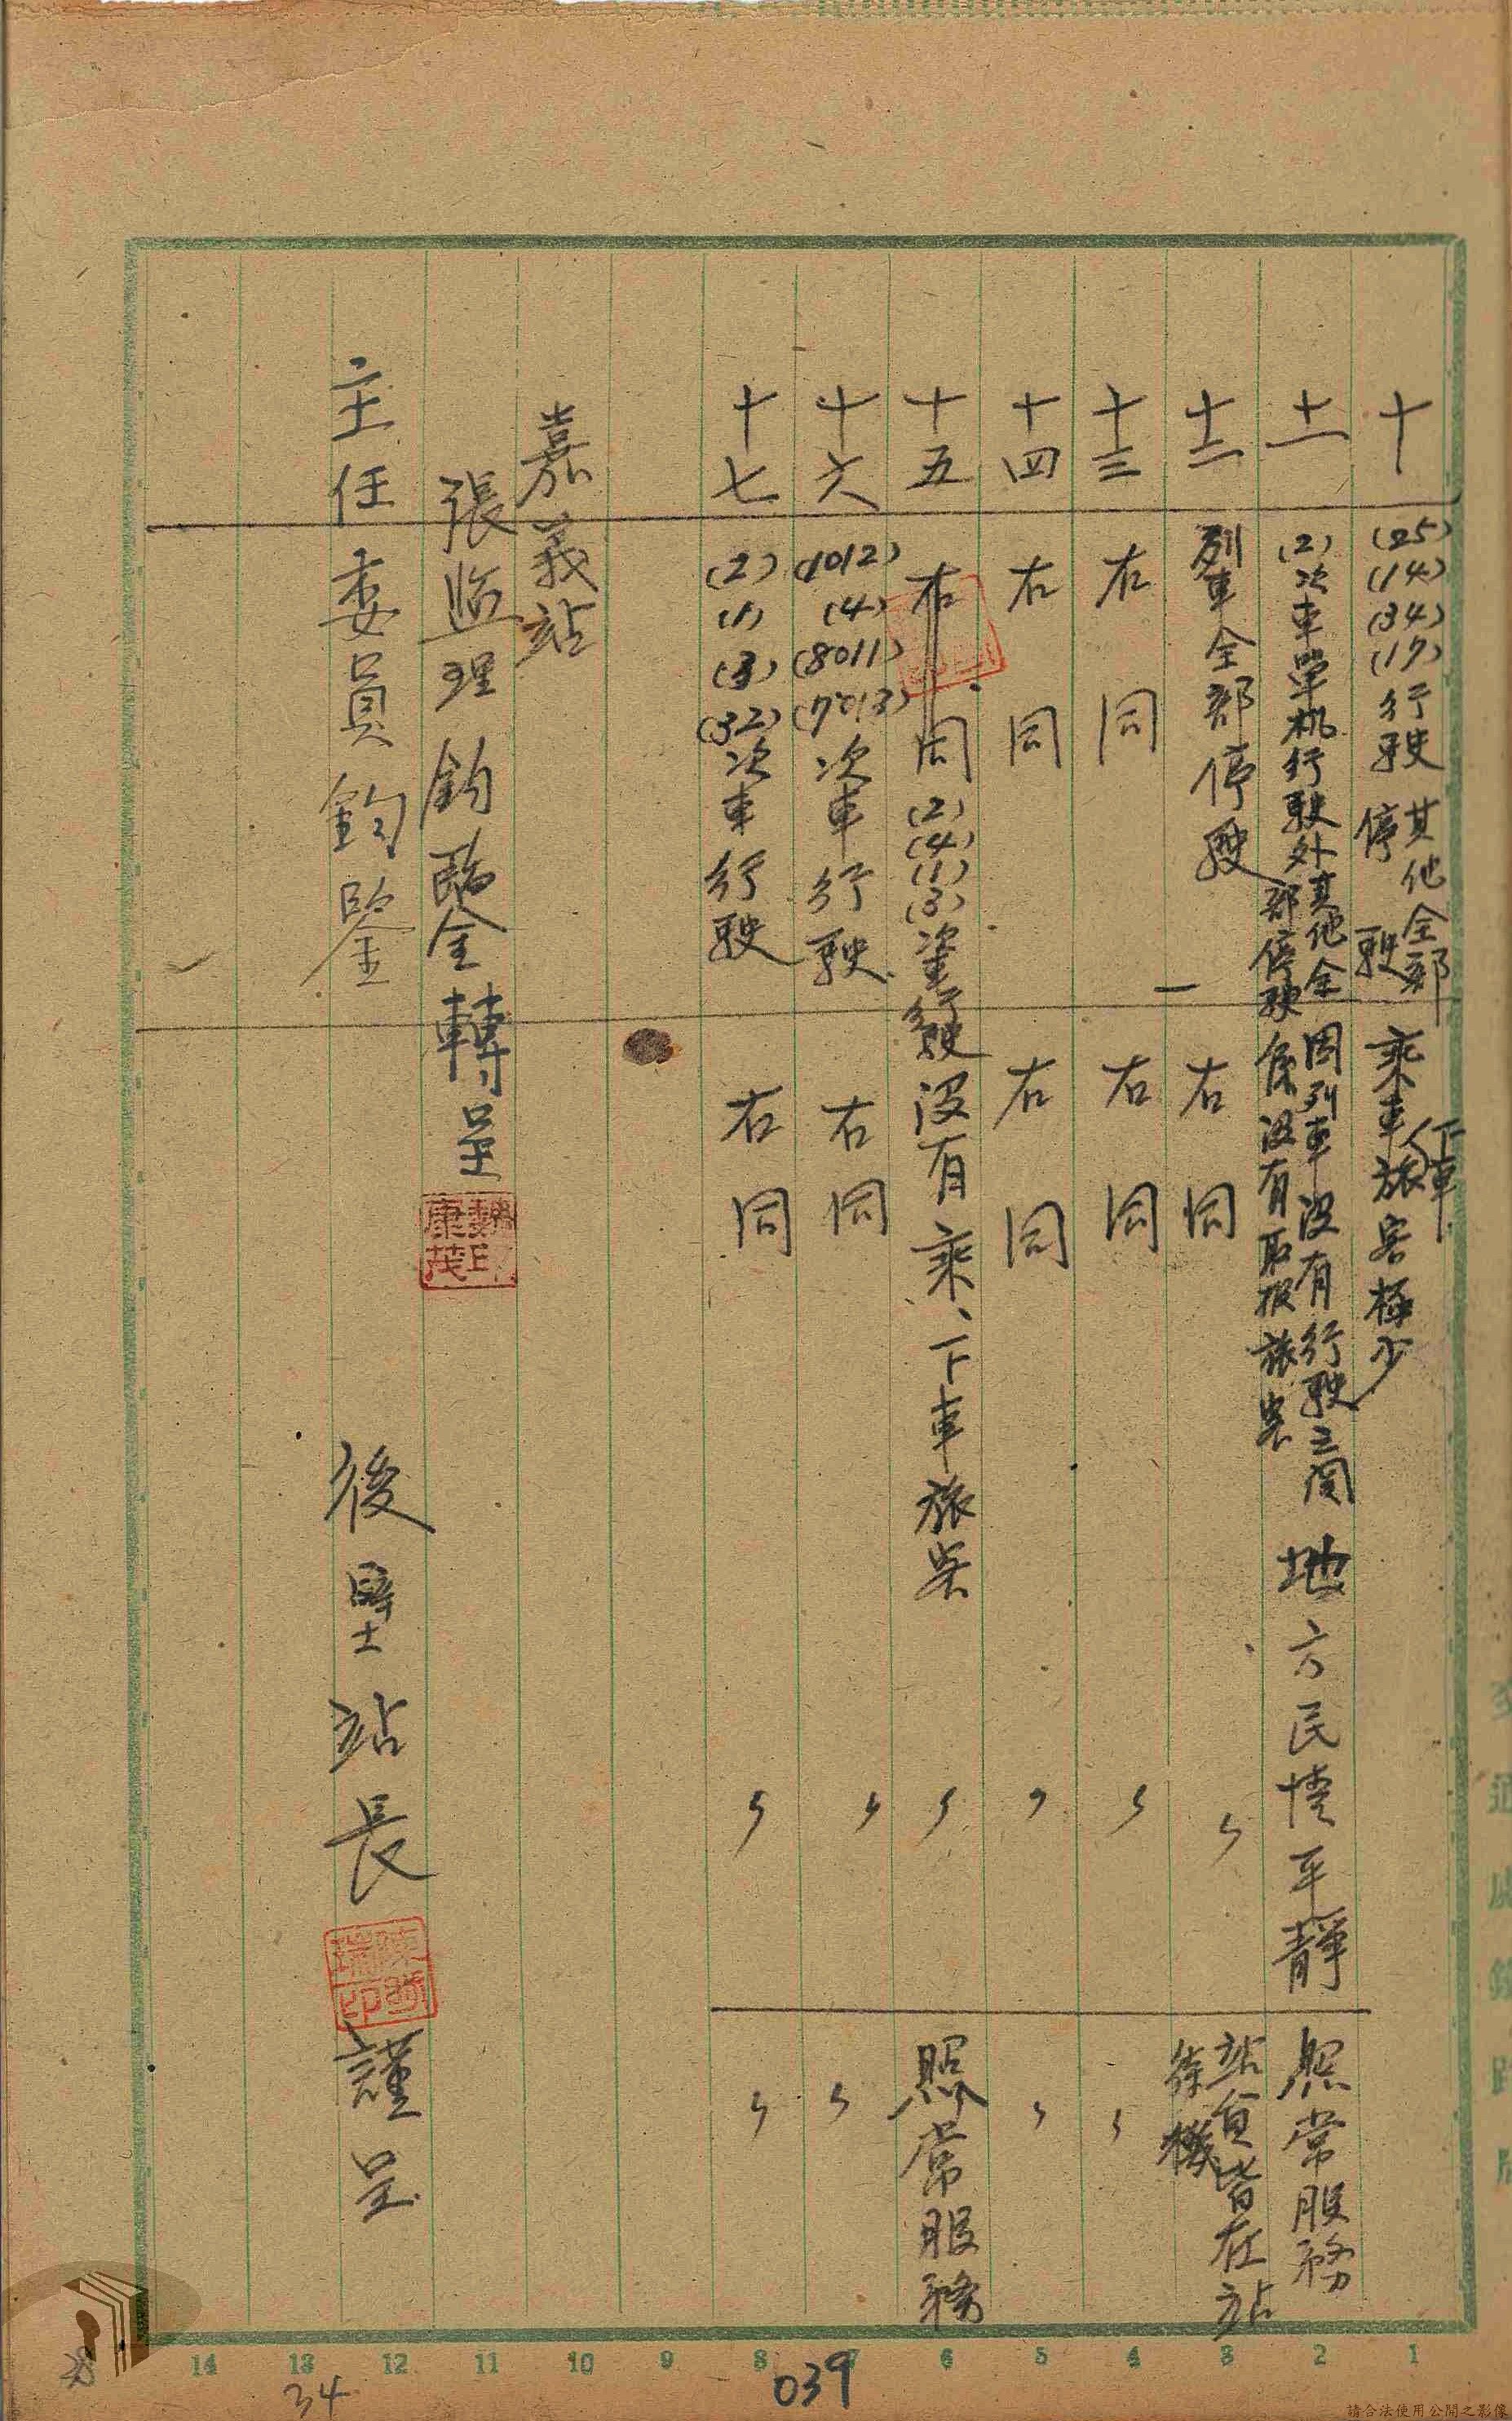 十 (25)(14)(34)(17)行駛 其他全部停駛 乘車下車旅客極少
十一 (2)次車單机行駛外其他全部停駛 因列車沒有行駛之関係沒有取扱旅客 地方民情平靜 照常服務
十二 列車全部停駛 右同 〃 站員皆在站待機
十三 右同 右同 〃 〃
十四 右同 右同 〃 〃
十五 右同 (2)(4)(1)(3)次車行駛 沒有乘、下車旅客 〃 照常服務
十六 (1012)(4)(8011)(7013)次車行駛 右同 〃 〃
十七 (2)(1)(3)(32)次車行駛 右同 〃 〃
嘉義站
張監理鈞鑒轉呈
魏康茂印
主任委員鈞鑒
後壁站長 謹呈
1 2 3 4 5 6 7 8 9 10 11 12 13 14
039
34
請合法使用公開之影像